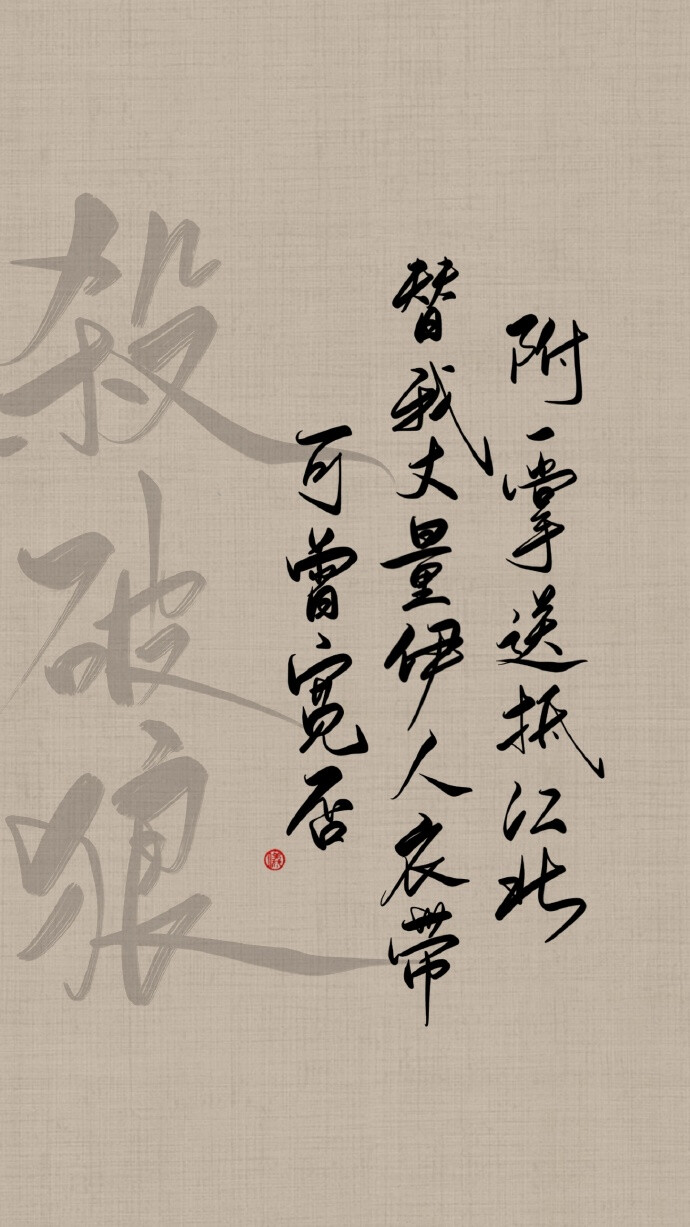 附一掌送抵江北
替我丈量伊人衣带
可曾宽否
殺破狼